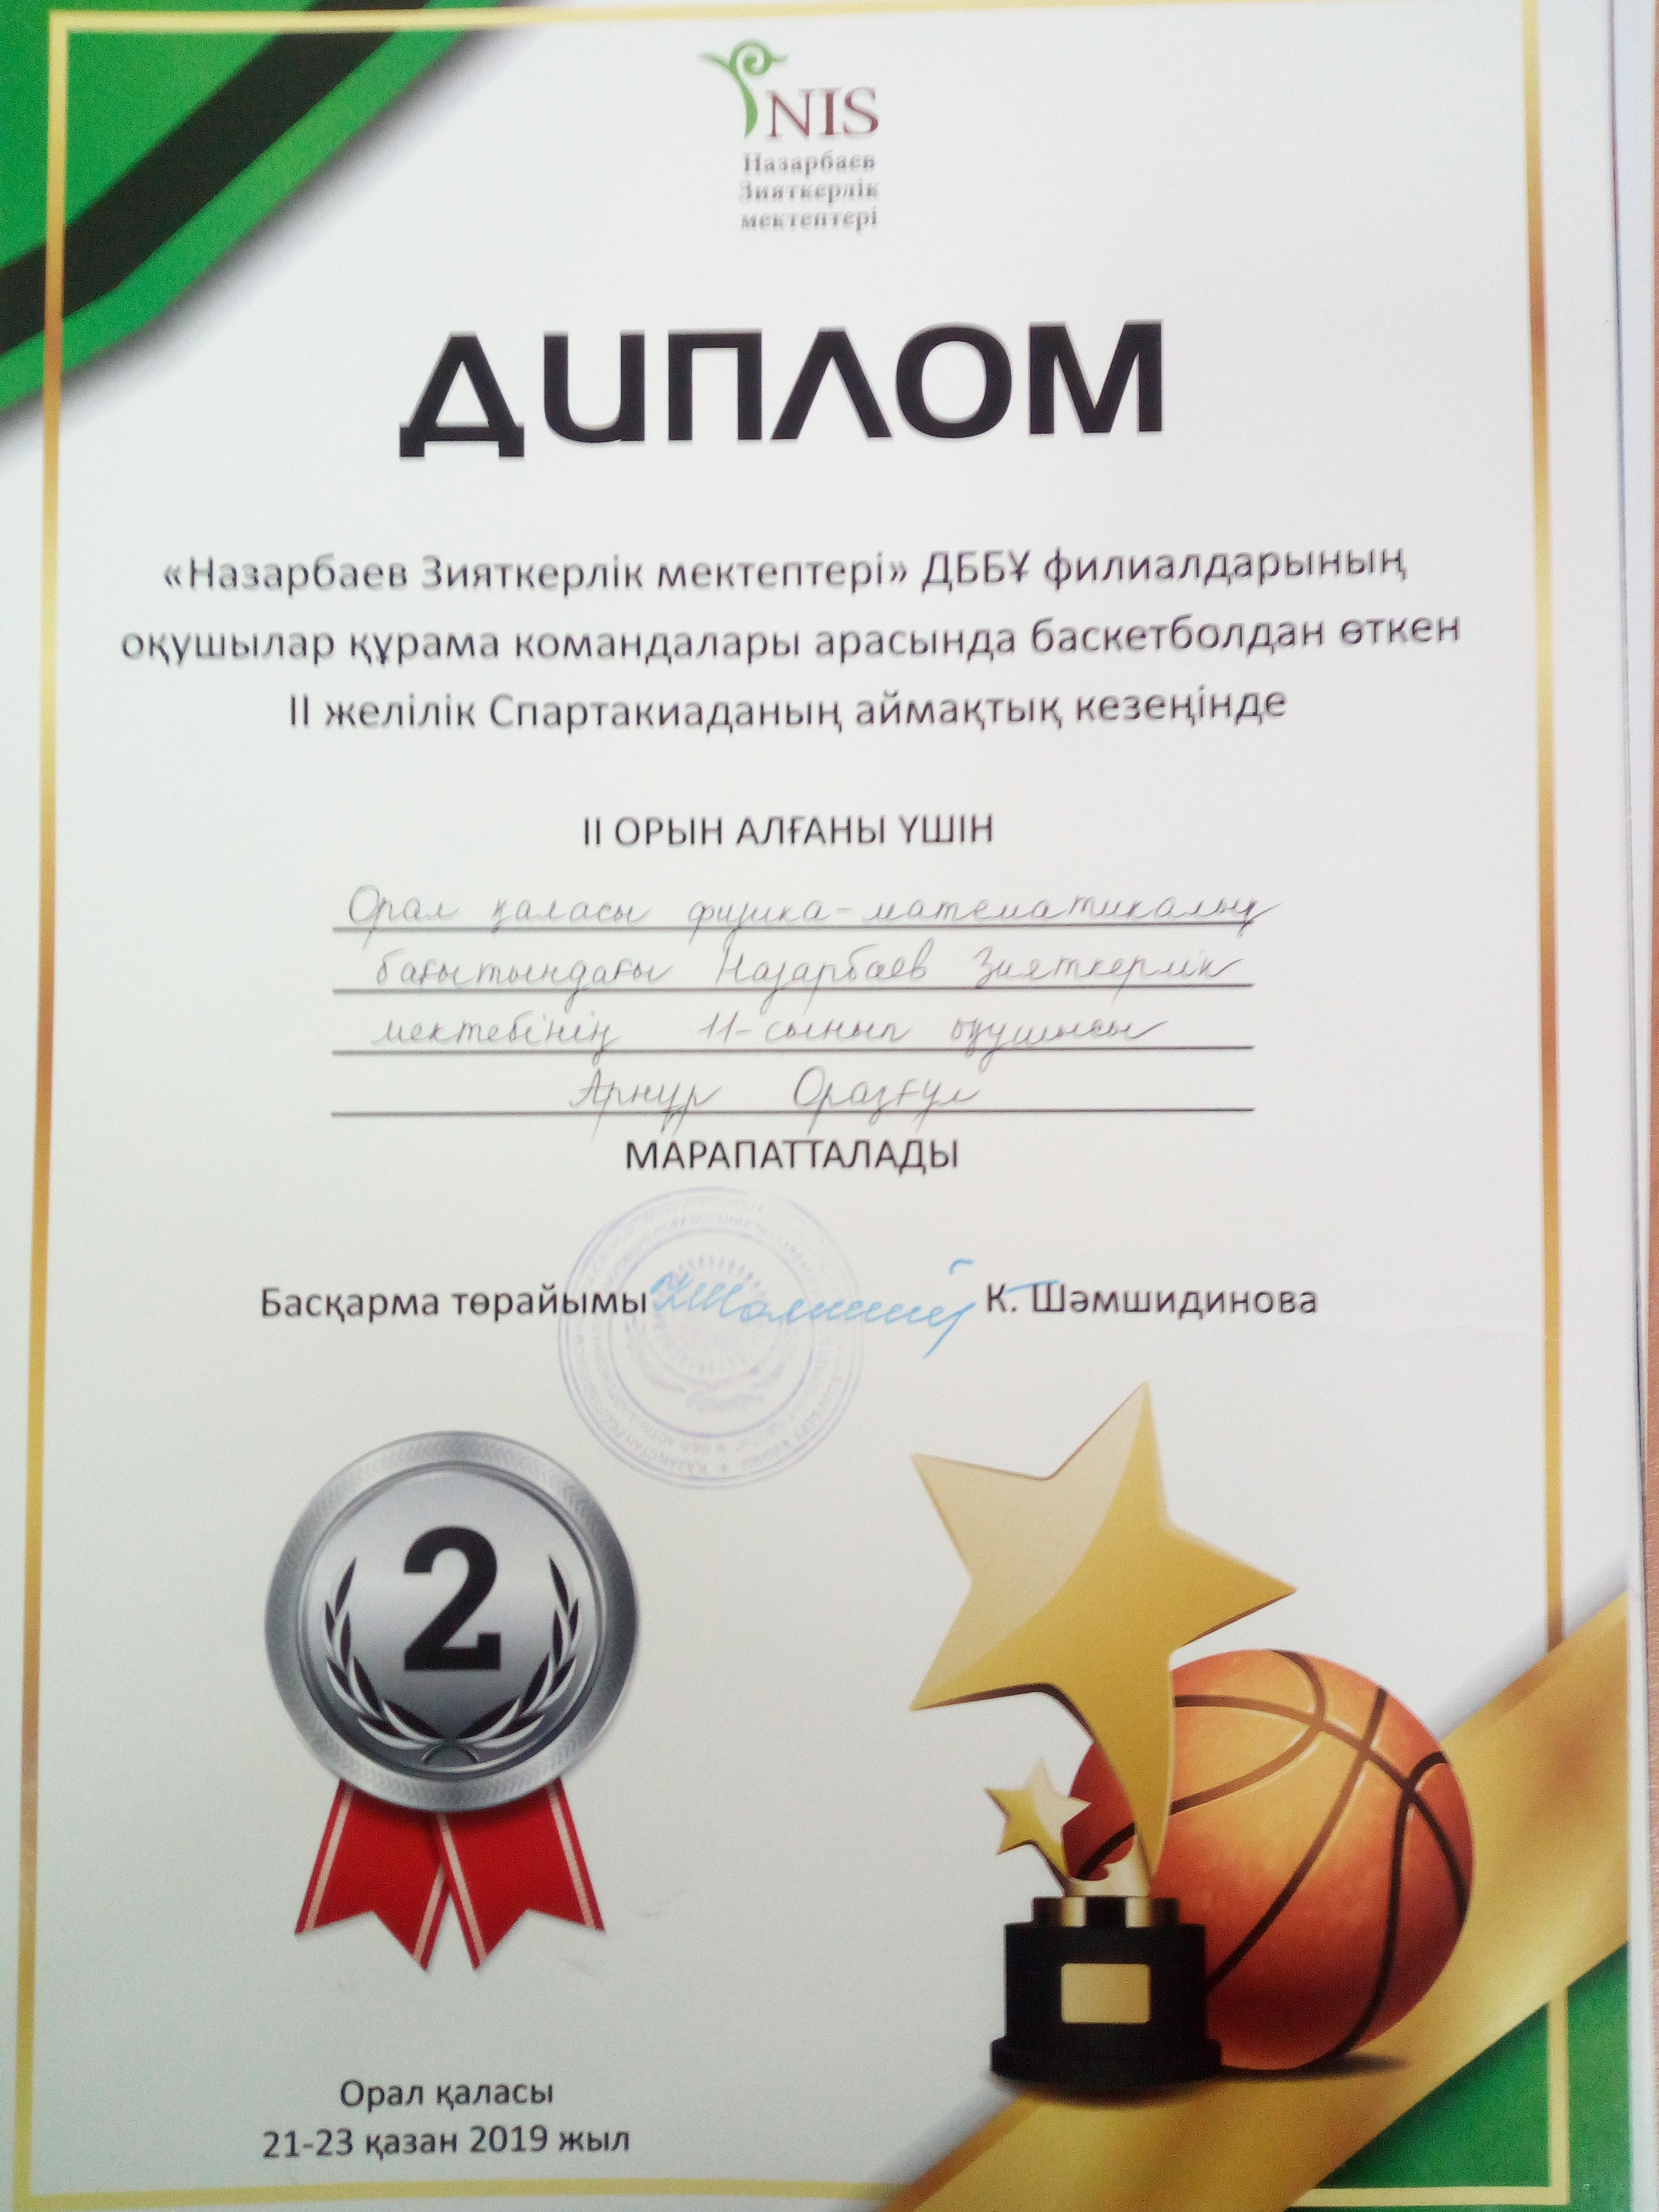 NIS
Назарбаев
Зияткерлік
мектептері
ДИПЛОМ
«Назарбаев Зияткерлік мектептері» ДББҰ филиалдарының
оқушылар құрама командалары арасында баскетболдан өткен
II желілік Спартакиаданың аймақтық кезеңінде
II ОРЫН АЛҒАНЫ ҮШІН
Орал қаласы физика-математикалық
бағытындағы Назарбаев Зияткерлік
мектебінің 11-сынып оқушысы
Арнұр Оразғұл
МАРАПАТТАЛАДЫ
Басқарма төрайымы К. Шәмшидинова
2
Орал қаласы
21-23 қазан 2019 жыл